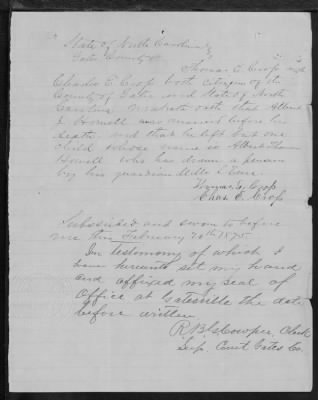 State of North Carolina
Gates County
Thomas E. Cross and
Charles E. Cross both citizens of the
County of Gates and State of North
Carolina maketh oath that Albert
J. Howell was married before his
death and that he left but one
child whose name is Albert
Howell who has drawn a pension
by his guardian Mills
Thomas E. Cross
Chas. E. Cross
Subscribed and sworn to before
me this February 1875
In testimony of which I
have hereunto set my hand
and affixed my seal of
Office at Gatesville the date
before written
R. B. G. Cowper, Clerk
Sup. Court Gates Co.